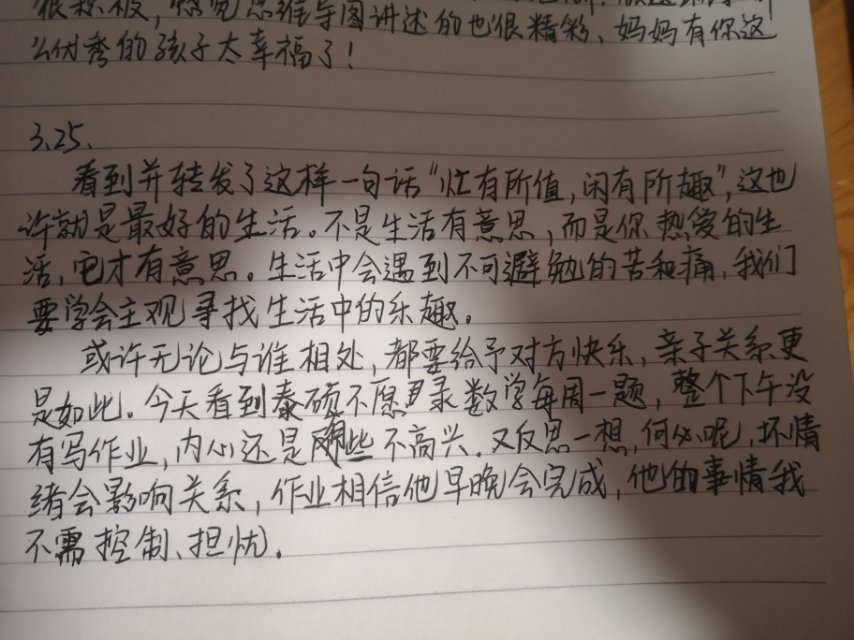 很积极，感觉思维导图讲述的也很精彩、妈妈有你这
么优秀的孩子太幸福了！
3.25、
看到并转发了这样一句话“忙有所值，闲有所趣”，这也
许就是最好的生活。不是生活有意思，而是你热爱的生
活，它才有意思。生活中会遇到不可避勉的苦和痛，我们
要学会主观寻找生活中的乐趣。
或许无论与谁相处，都要给予对方快乐，亲子关系更
是如此。今天看到泰硕不愿录数学每周一题，整个下午没
有写作业，内心还是有些不高兴．又反思一想，何必呢，坏情
绪会影响关系，作业相信他早晚会完成，他的事情我
不需控制、担忧．